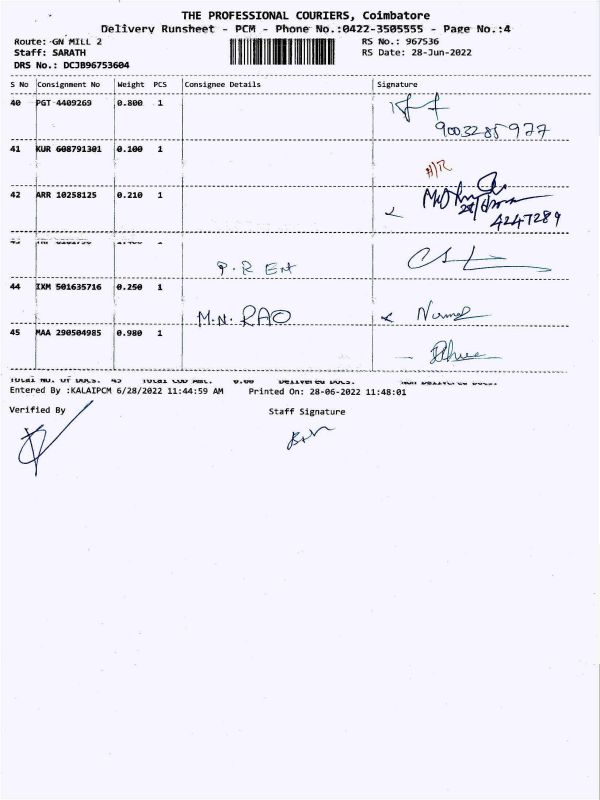 THE PROFESSIONAL COURIERS, Coimbatore
Delivery Runsheet - PCM - Phone No.:0422-3505555 - Page No.:4
Route: GN MILL 2
RS No.: 967536
Staff: SARATH
RS Date: 28-Jun-2022
DRS No.: DCJB96753604
S No Consignment No Weight PCS Consignee Details Signature
40 PGT 4409269 0.800 1
9003285977
41 KUR 608791301 0.100 1
42 ARR 10258125 0.210 1
4247289
43
P.R Ent
44 IXM 501635716 0.250 1
M.N. RAO
45 MAA 290504985 0.980 1
Total No. Of Docs. 45 Total COD Amt. 0.00 Delivered Docs. Non Delivered Docs.
Entered By :KALAIPCM 6/28/2022 11:44:59 AM Printed On: 28-06-2022 11:48:01
Verified By Staff Signature